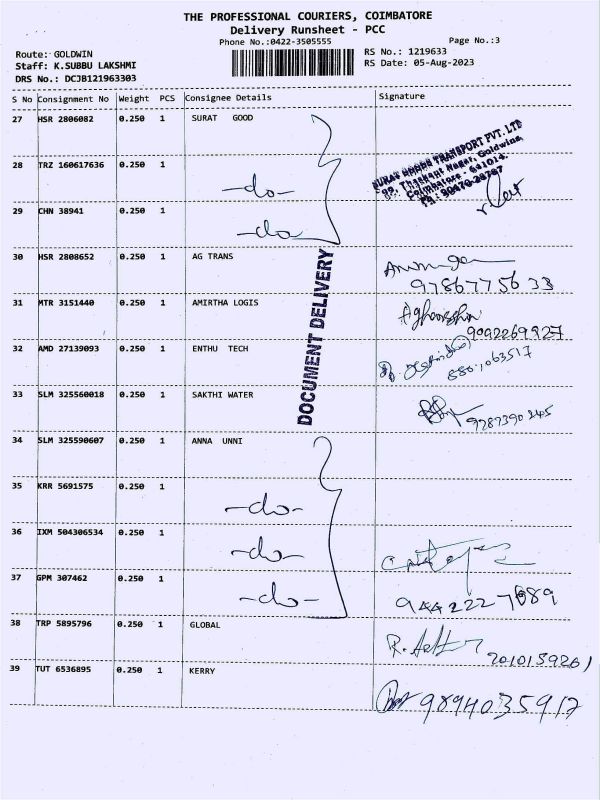 THE PROFESSIONAL COURIERS, COIMBATORE
Delivery Runsheet - PCC
Phone No.:0422-3505555
Page No.:3
Route: GOLDWIN
RS No.: 1219633
Staff: K.SUBBU LAKSHMI
RS Date: 05-Aug-2023
DRS No.: DCJB121963303
S No Consignment No Weight PCS Consignee Details Signature
27 HSR 2806082 0.250 1 SURAT GOOD
28 TRZ 160617636 0.250 1 -do-
TRANSPORT PVT. LTD
Nagar, Goldwins,
Coimbatore - 641014.
29 CHN 38941 0.250 1 -do-
30 HSR 2808652 0.250 1 AG TRANS
9786775633
DOCUMENT DELIVERY
31 MTR 3151440 0.250 1 AMIRTHA LOGIS
9092269927
32 AMD 27139093 0.250 1 ENTHU TECH
33 SLM 325560018 0.250 1 SAKTHI WATER
9787390245
34 SLM 325590607 0.250 1 ANNA UNNI
35 KRR 5691575 0.250 1 -do-
36 IXM 504306534 0.250 1 -do-
37 GPM 307462 0.250 1 -do-
38 TRP 5895796 0.250 1 GLOBAL
39 TUT 6536895 0.250 1 KERRY
9894035917